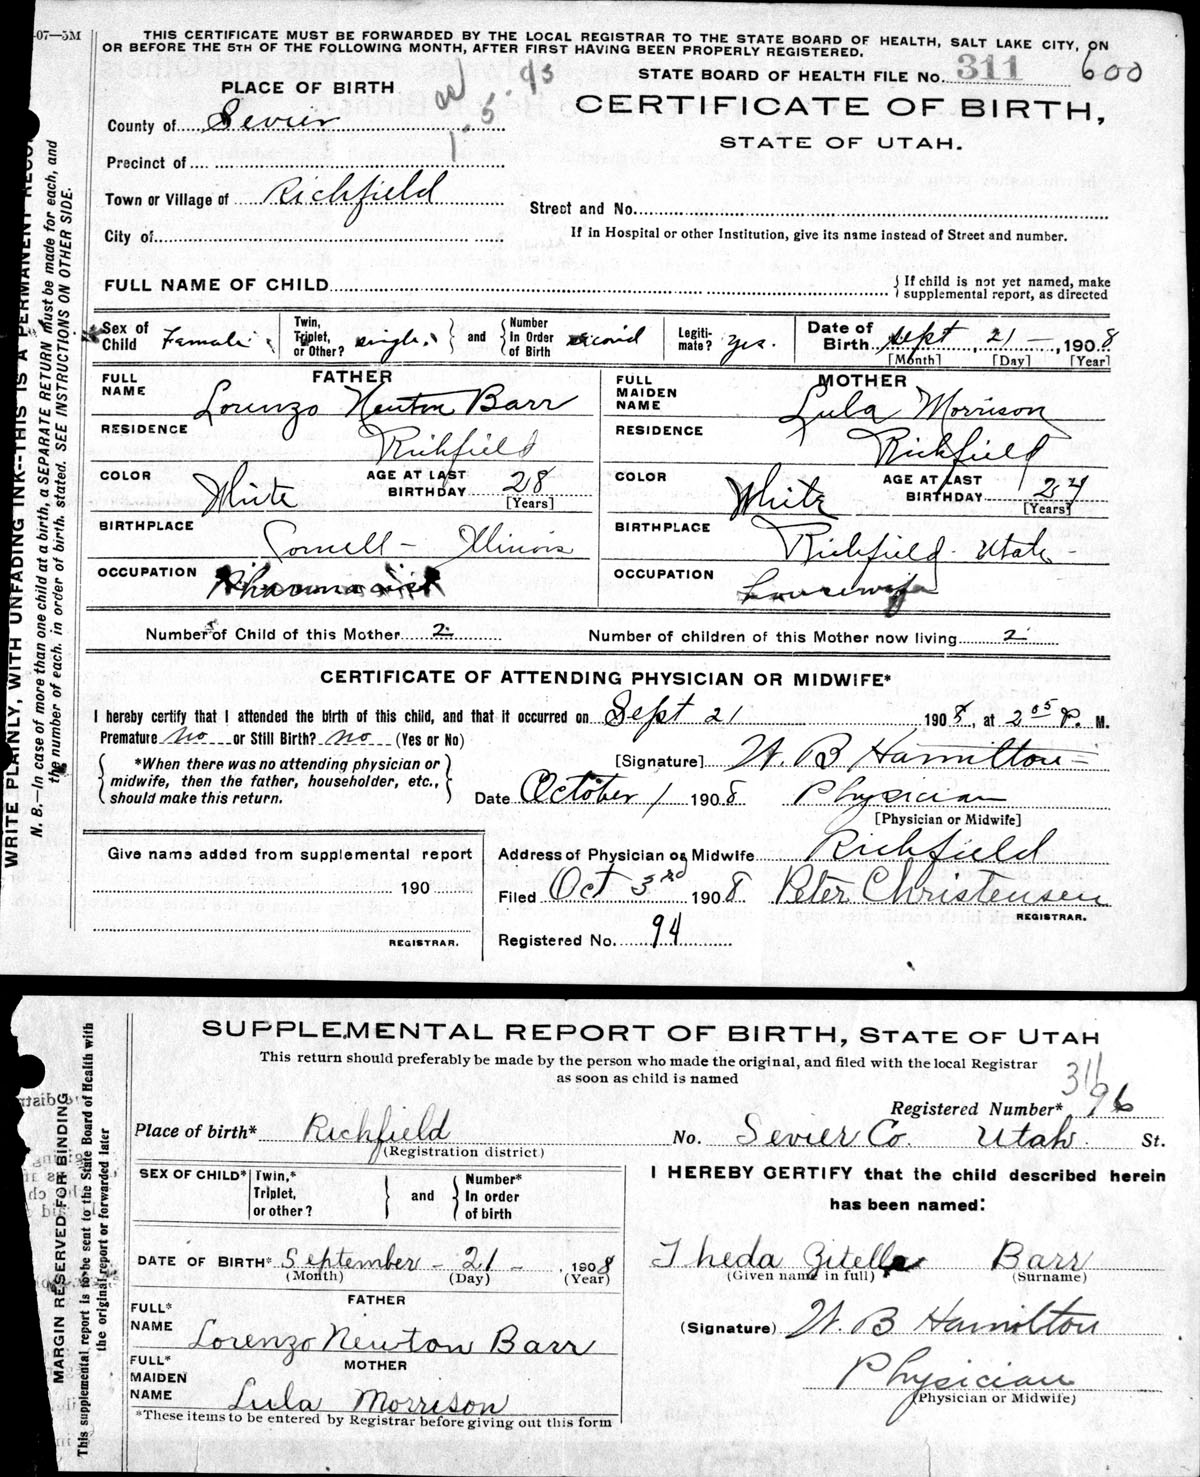 -07—5M
THIS CERTIFICATE MUST BE FORWARDED BY THE LOCAL REGISTRAR TO THE STATE BOARD OF HEALTH, SALT LAKE CITY, ON
OR BEFORE THE 5TH OF THE FOLLOWING MONTH, AFTER FIRST HAVING BEEN PROPERLY REGISTERED.
STATE BOARD OF HEALTH FILE No. 311 600
PLACE OF BIRTH
CERTIFICATE OF BIRTH,
STATE OF UTAH.
County of Sevier
Precinct of
Town or Village of Richfield
Street and No.
City of
If in Hospital or other Institution, give its name instead of Street and number.
FULL NAME OF CHILD
If child is not yet named, make
supplemental report, as directed
Sex of Child Female Twin, Triplet, or Other? single and Number In Order of Birth second Legiti-mate? yes. Date of Birth Sept 21 — 1908
[Month] [Day] [Year]
FATHER
FULL NAME Lorenzo Newton Barr
RESIDENCE Richfield
COLOR White AGE AT LAST BIRTHDAY 28
[Years]
BIRTHPLACE Cornell — Illinois
OCCUPATION Pharmacist
MOTHER
FULL MAIDEN NAME Lula Morrison
RESIDENCE Richfield
COLOR White AGE AT LAST BIRTHDAY 24
[Years]
BIRTHPLACE Richfield - Utah -
OCCUPATION housewife
Number of Child of this Mother 2 Number of children of this Mother now living 2
CERTIFICATE OF ATTENDING PHYSICIAN OR MIDWIFE*
I hereby certify that I attended the birth of this child, and that it occurred on Sept 21 1908, at 2 05 P. M.
Premature no or Still Birth? no (Yes or No)
*When there was no attending physician or
midwife, then the father, householder, etc.,
should make this return.
[Signature] W. B Hamilton
Date October 1 1908 Physician
[Physician or Midwife]
Give name added from supplemental report
190
REGISTRAR.
Address of Physician or Midwife Richfield
Filed Oct 3rd 1908 Peter Christensen
REGISTRAR.
Registered No. 94
WRITE PLAINLY, WITH UNFADING INK--THIS IS A PERMANENT RECO
N. B.—In case of more than one child at a birth, a SEPARATE RETURN must be made for each, and
the number of each, in order of birth, stated. SEE INSTRUCTIONS ON OTHER SIDE.
SUPPLEMENTAL REPORT OF BIRTH, STATE OF UTAH
This return should preferably be made by the person who made the original, and filed with the local Registrar
as soon as child is named
311
Registered Number* 96
Place of birth* Richfield No. Sevier Co. Utah. St.
(Registration district)
SEX OF CHILD* Twin,* Triplet, or other? and Number* In order of birth
DATE OF BIRTH* September - 21 - 1908
(Month) (Day) (Year)
FATHER
FULL* NAME Lorenzo Newton Barr
MOTHER
FULL* MAIDEN NAME Lula Morrison
*These items to be entered by Registrar before giving out this form
I HEREBY CERTIFY that the child described herein
has been named:
Theda Zitella Barr
(Given name in full) (Surname)
(Signature) W. B Hamilton
Physician
(Physician or Midwife)
MARGIN RESERVED FOR BINDING
This supplemental report is to be sent to the State Board of Health with
the original report or forwarded later